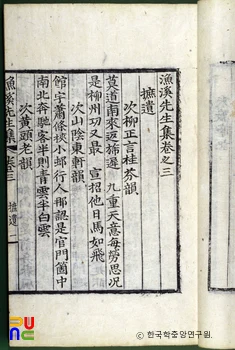 漁溪先生集卷之三
摭遺
次柳正言桂芬韻
莫道南來返旆遲九重天意每勞思况
是柳州功又最宣招他日馬如飛
次山陰東軒韻
館宇蕭條接小邨行人那認是官門箇中
南北奔馳客半則青雲半白雲
次黃頭老韻
漁溪先生集 卷三 摭遺
ⓒ 한국학중앙연구원